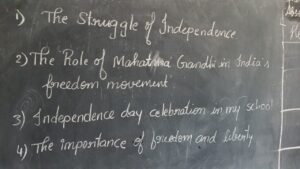 1) The Struggle of Independence
2) The Role of Mahatma Gandhi in India's
freedom movement
3) Independence day celebration in my school
4) The importance of freedom and liberty